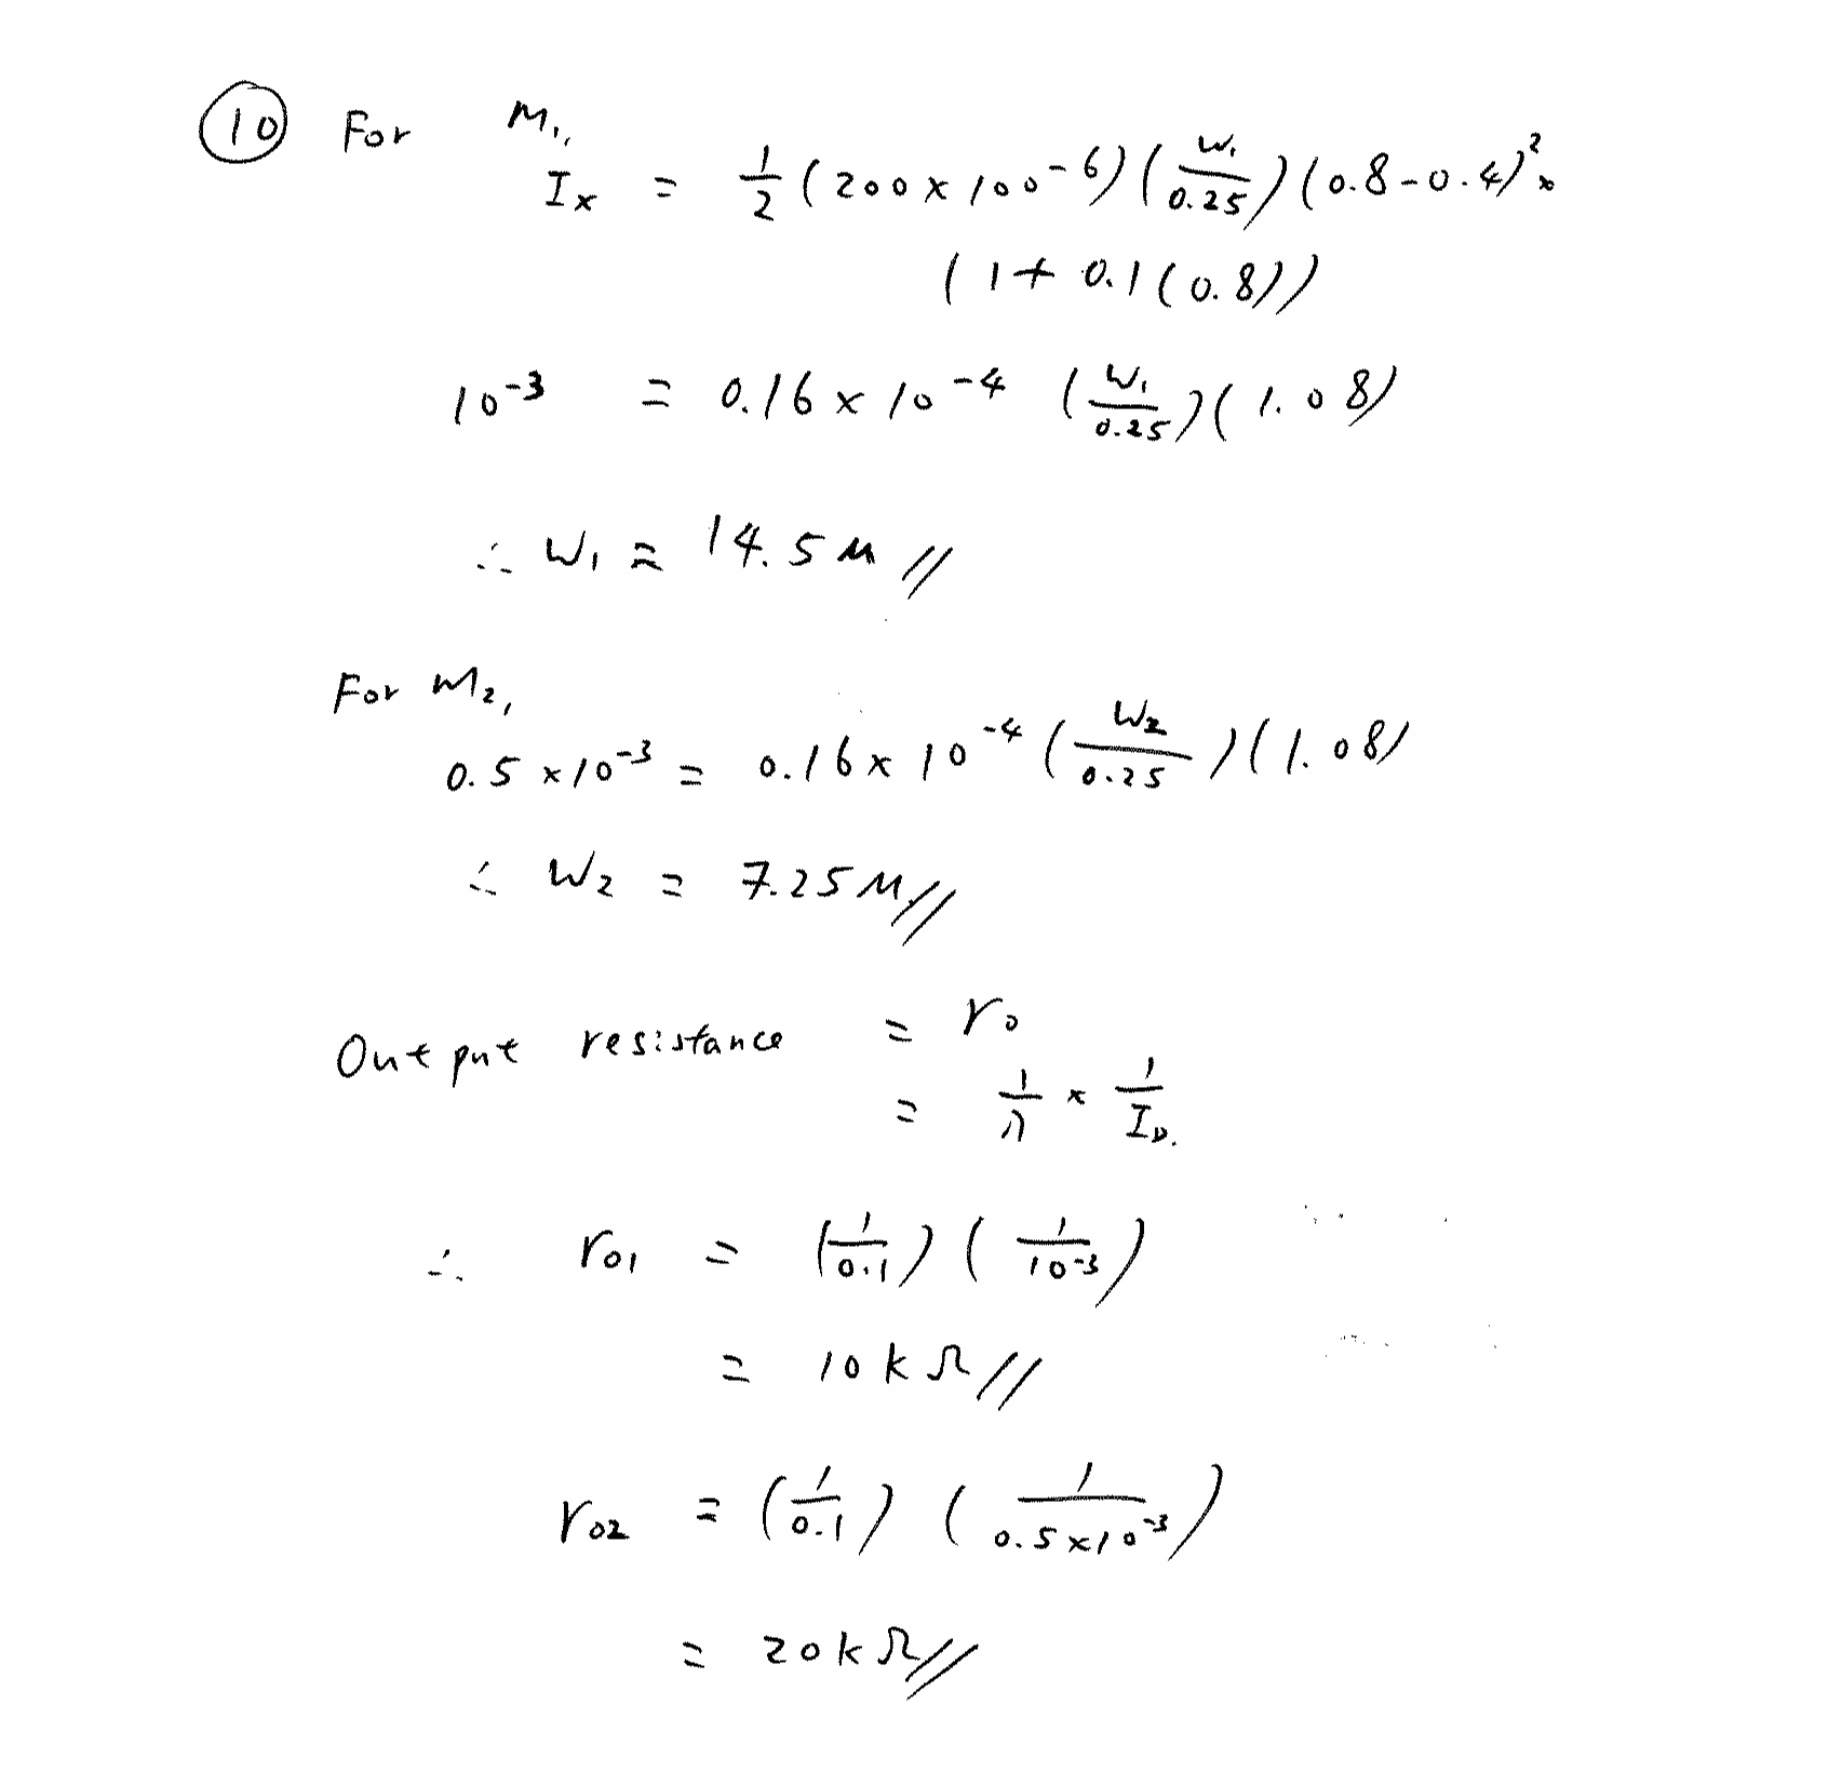 (10) For M₁,
Iₓ = 1/2 (200 × 100⁻⁶) (W₁/0.25) (0.8-0.4)² ×
(1 + 0.1(0.8))
10⁻³ = 0.16 × 10⁻⁴ (W₁/0.25)(1.08)
∴ W₁ = 14.5 μ //
For M₂,
0.5 × 10⁻³ = 0.16 × 10⁻⁴ (W₂/0.25)(1.08)
∴ W₂ = 7.25 μ //
Output resistance = r₀
= 1/λ × 1/I_D.
∴ r₀₁ = (1/0.1) (1/10⁻³)
= 10 k Ω //
r₀₂ = (1/0.1) (1/0.5×10⁻³)
= 20k Ω //